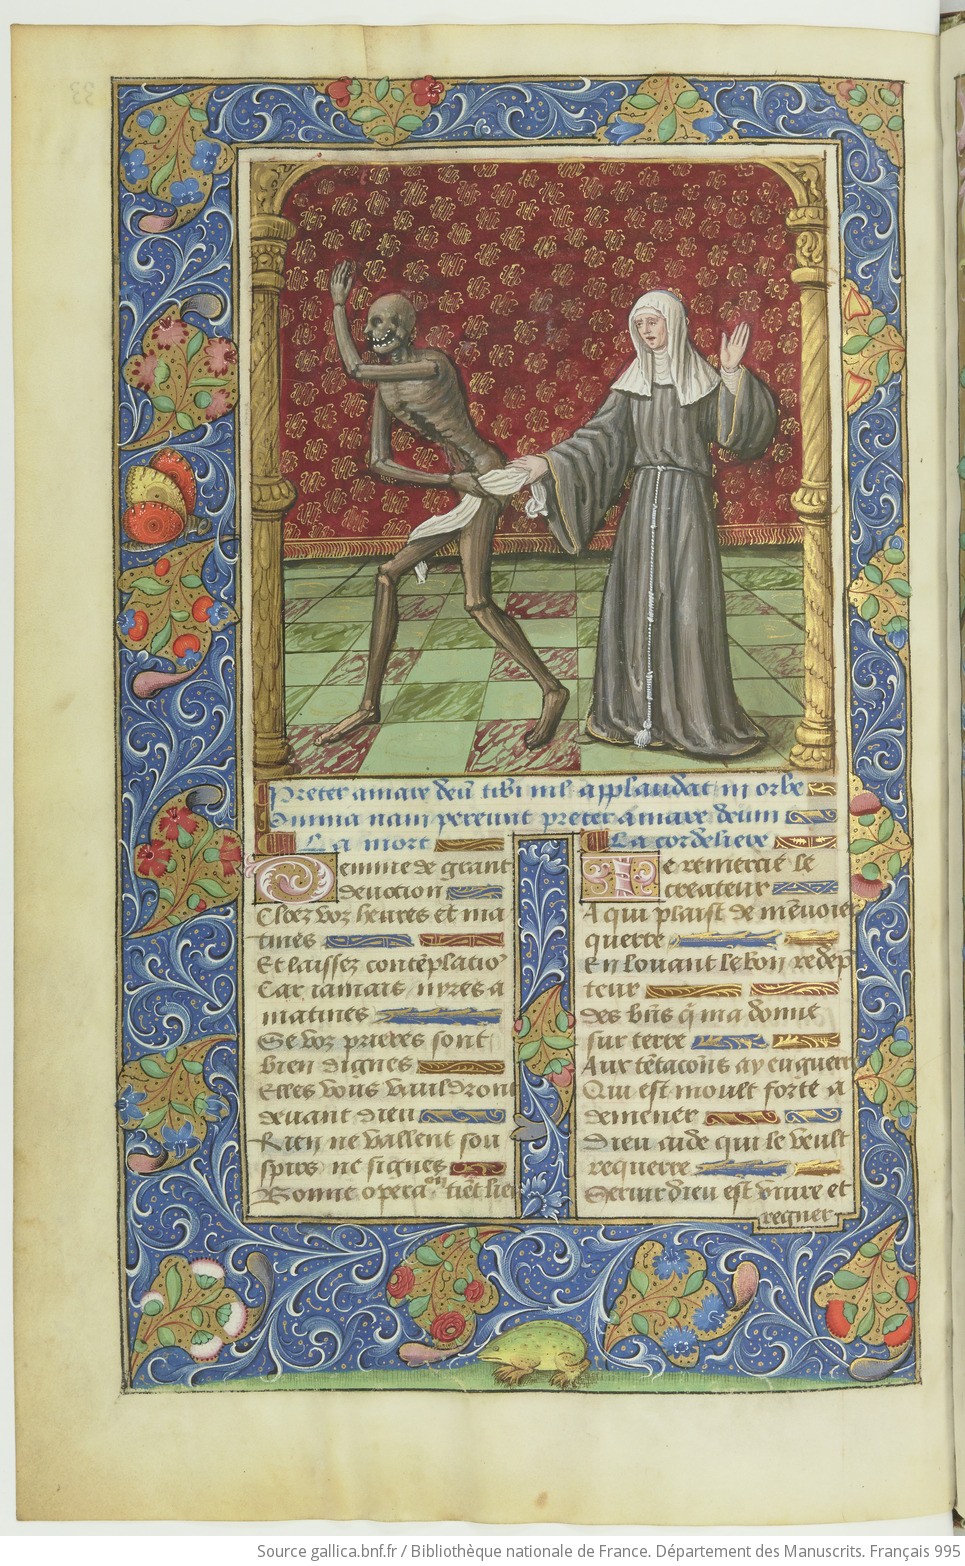 Preter amare deū tibi nil applaudat in orbe
Omnia nam pereunt preter amare deum
La mort
Femme de grant
deuocion
Cloez voz heures et ma
tines
Et laissez contēplacioˀ
Car iamais nyres a
matines
Se voz prieres sont
bien dignes
Elles vous vauldront
deuant dieu
Rien ne vallent sou
spirs ne signes
Bonne opera
on
tiēt lieu
La cordeliere
Je remercie le
createur
A qui plaist de mēuoier
querre
En louant le bon redēp
teur
des bn̄s q̄ ma donne
sur terre
Aux tētacōns ay eu guerre
Qui est moult forte a
demener
Dieu aide qui le veult
requerre
Seruir dieu est viure et
regner
Source gallica.bnf.fr / Bibliothèque nationale de France. Département des Manuscrits. Français 995